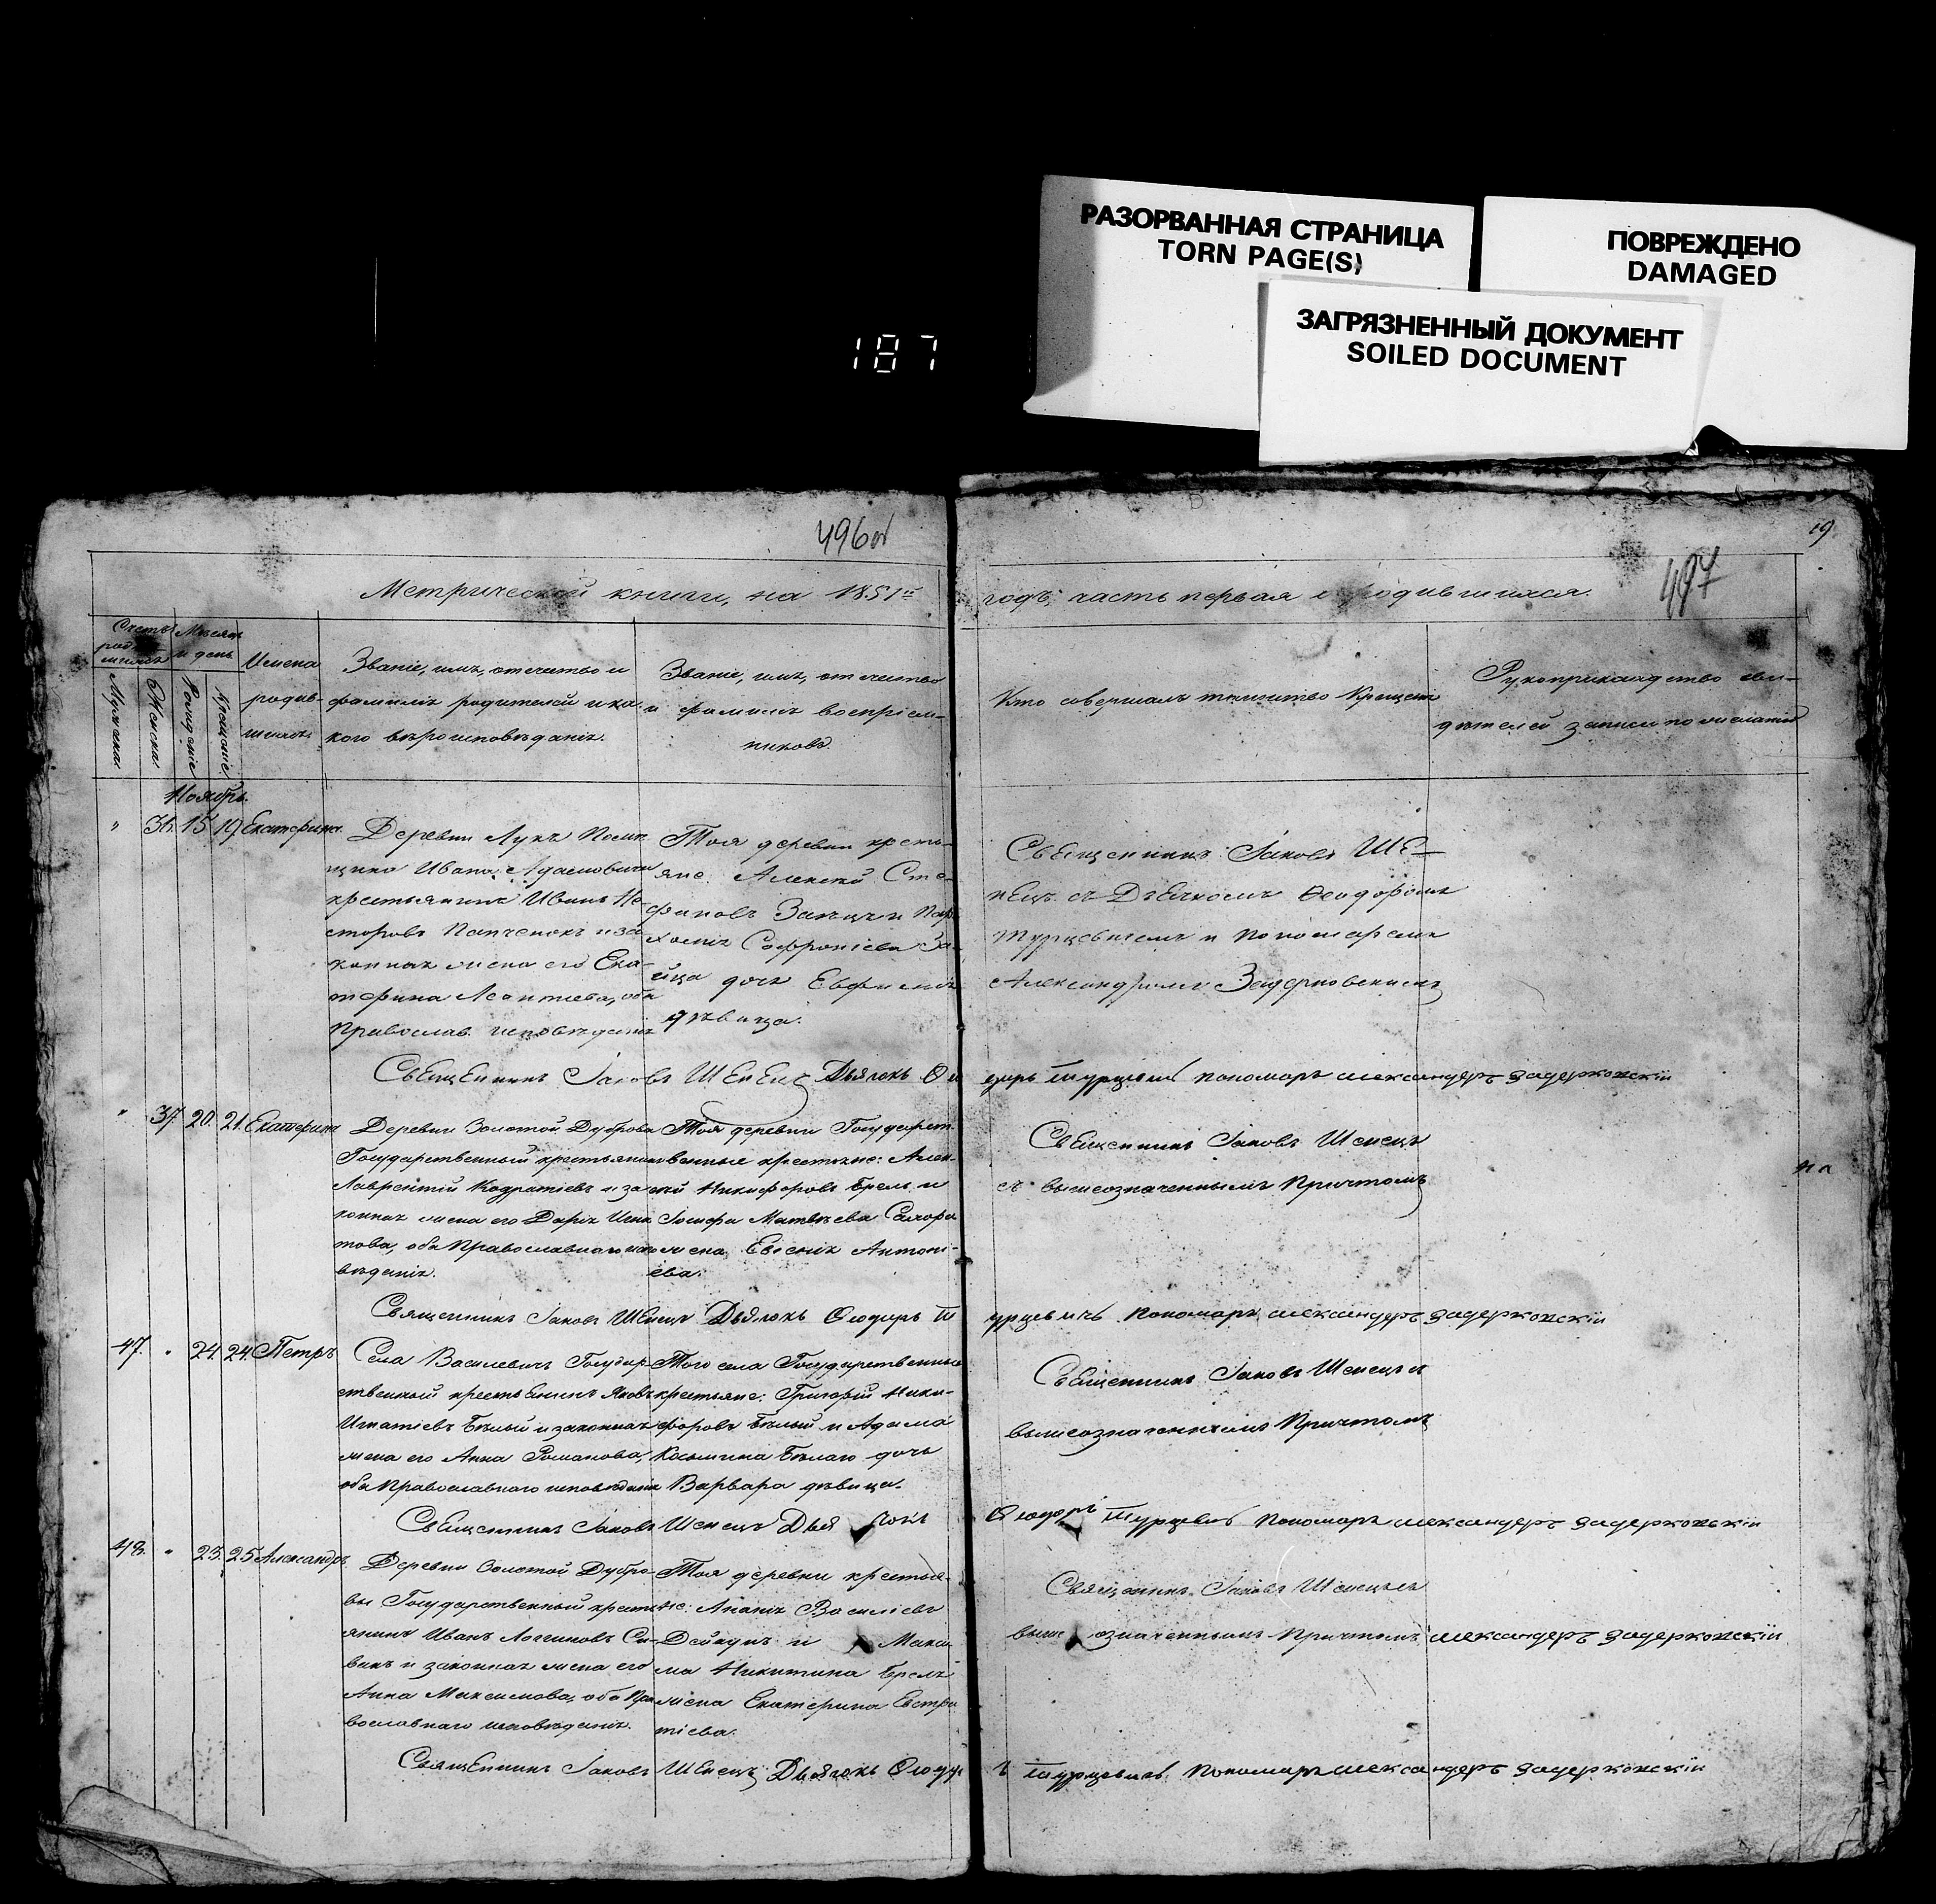 РАЗОРВАННАЯ СТРАНИЦА
TORN PAGE(S)
ПОВРЕЖДЕНО
DAMAGED
ЗАГРЯЗНЕННЫЙ ДОКУМЕНТ
SOILED DOCUMENT
187
496об
19
497
Метрической книги, на 1851й
годъ, часть первая о родившихся.
Счетъ
Мѣсяцъ
и день
Мужеска
Женска
Рожденіе
Крещеніе
Имена
родив-
шихся
Званіе, имя, отчество и
фамилія родителей и ка-
кого вѣроисповѣданія.
Званіе, имя, отчество
и фамилія воспріем-
никовъ.
Кто совершалъ таинство крещенія
Рукоприкладство сви-
дѣтелей записи по желанію
Ноябрь.
" 36. 15 19 Екатерина.
Деревни Лукъ
Ивана Адамовича
крестьянинъ Иванъ Не-
сторовъ Папченокъ и за-
конная жена его Ека-
терина Леонтіева, оба
Православ. исповѣданія
Тоя деревни кресть-
яне: Алексѣй Сте-
фановъ Заяцъ и
Софроніева За-
йца дочь Евфимія
дѣвица.
Священникъ Іаковъ Ше-
пецъ съ Дьячкомъ Ѳеодоромъ
Турцевичемъ и Пономаремъ
Александромъ Задерковскимъ
Священникъ Іаковъ Шепецъ Дьячокъ Ѳеодоръ Турцевичъ Пономаръ Александеръ Задерковскій
" 37. 20. 21. Екатерина
Деревни Золотой Дубровы
Государственный крестьянинъ
Лаврентій Кодратіевъ и за-
конная жена его Дарія Игна-
това, оба Православнаго испо-
вѣданія.
Тоя деревни Государст-
венные крестьяне: Алек-
сѣй Никифоровъ Брель и
Іосифа Матвѣева
жена Евгенія Антоні-
ева.
Священникъ Іаковъ Шепецъ
съ вышеозначеннымъ Причтомъ
Священникъ Іаковъ Шепецъ Дьячокъ Ѳеодоръ Турцевичъ Пономаръ Александеръ Задерковскій
47. " 24. 24. Петръ
Села Василевичъ Государ-
ственный крестьянинъ Яковъ
Игнатіевъ Бѣлый и законная
жена его Анна Романова,
оба Православнаго исповѣданія
Того села Государственные
крестьяне: Григорій Ники-
форовъ Бѣлый и Адама
Косьмина Бѣлаго дочь
Варвара дѣвица.
Священникъ Іаковъ Шепецъ съ
вышеозначеннымъ Причтомъ
Священникъ Іаковъ Шепецъ Дьячокъ Ѳеодоръ Турцевичъ Пономаръ Александеръ Задерковскій
48. " 23. 25 Александръ
Деревни Золотой Дубро-
вы Государственный кресть-
янинъ Иванъ Логгиновъ Си-
вакъ и законная жена его
Анна Максимова, оба Пра-
вославнаго исповѣданія.
Тоя деревни крестья-
не: Ананія Василіевъ
Дейкунъ и Макси-
ма Никитина Бреля
жена Екатерина Евстра-
тіева.
Священникъ Іаковъ Шепецъ съ
вышеозначеннымъ Причтомъ Александеръ Задерковскій
Священникъ Іаковъ Шепецъ Дьячокъ Ѳеодоръ Турцевичъ Пономаръ Александеръ Задерковскій